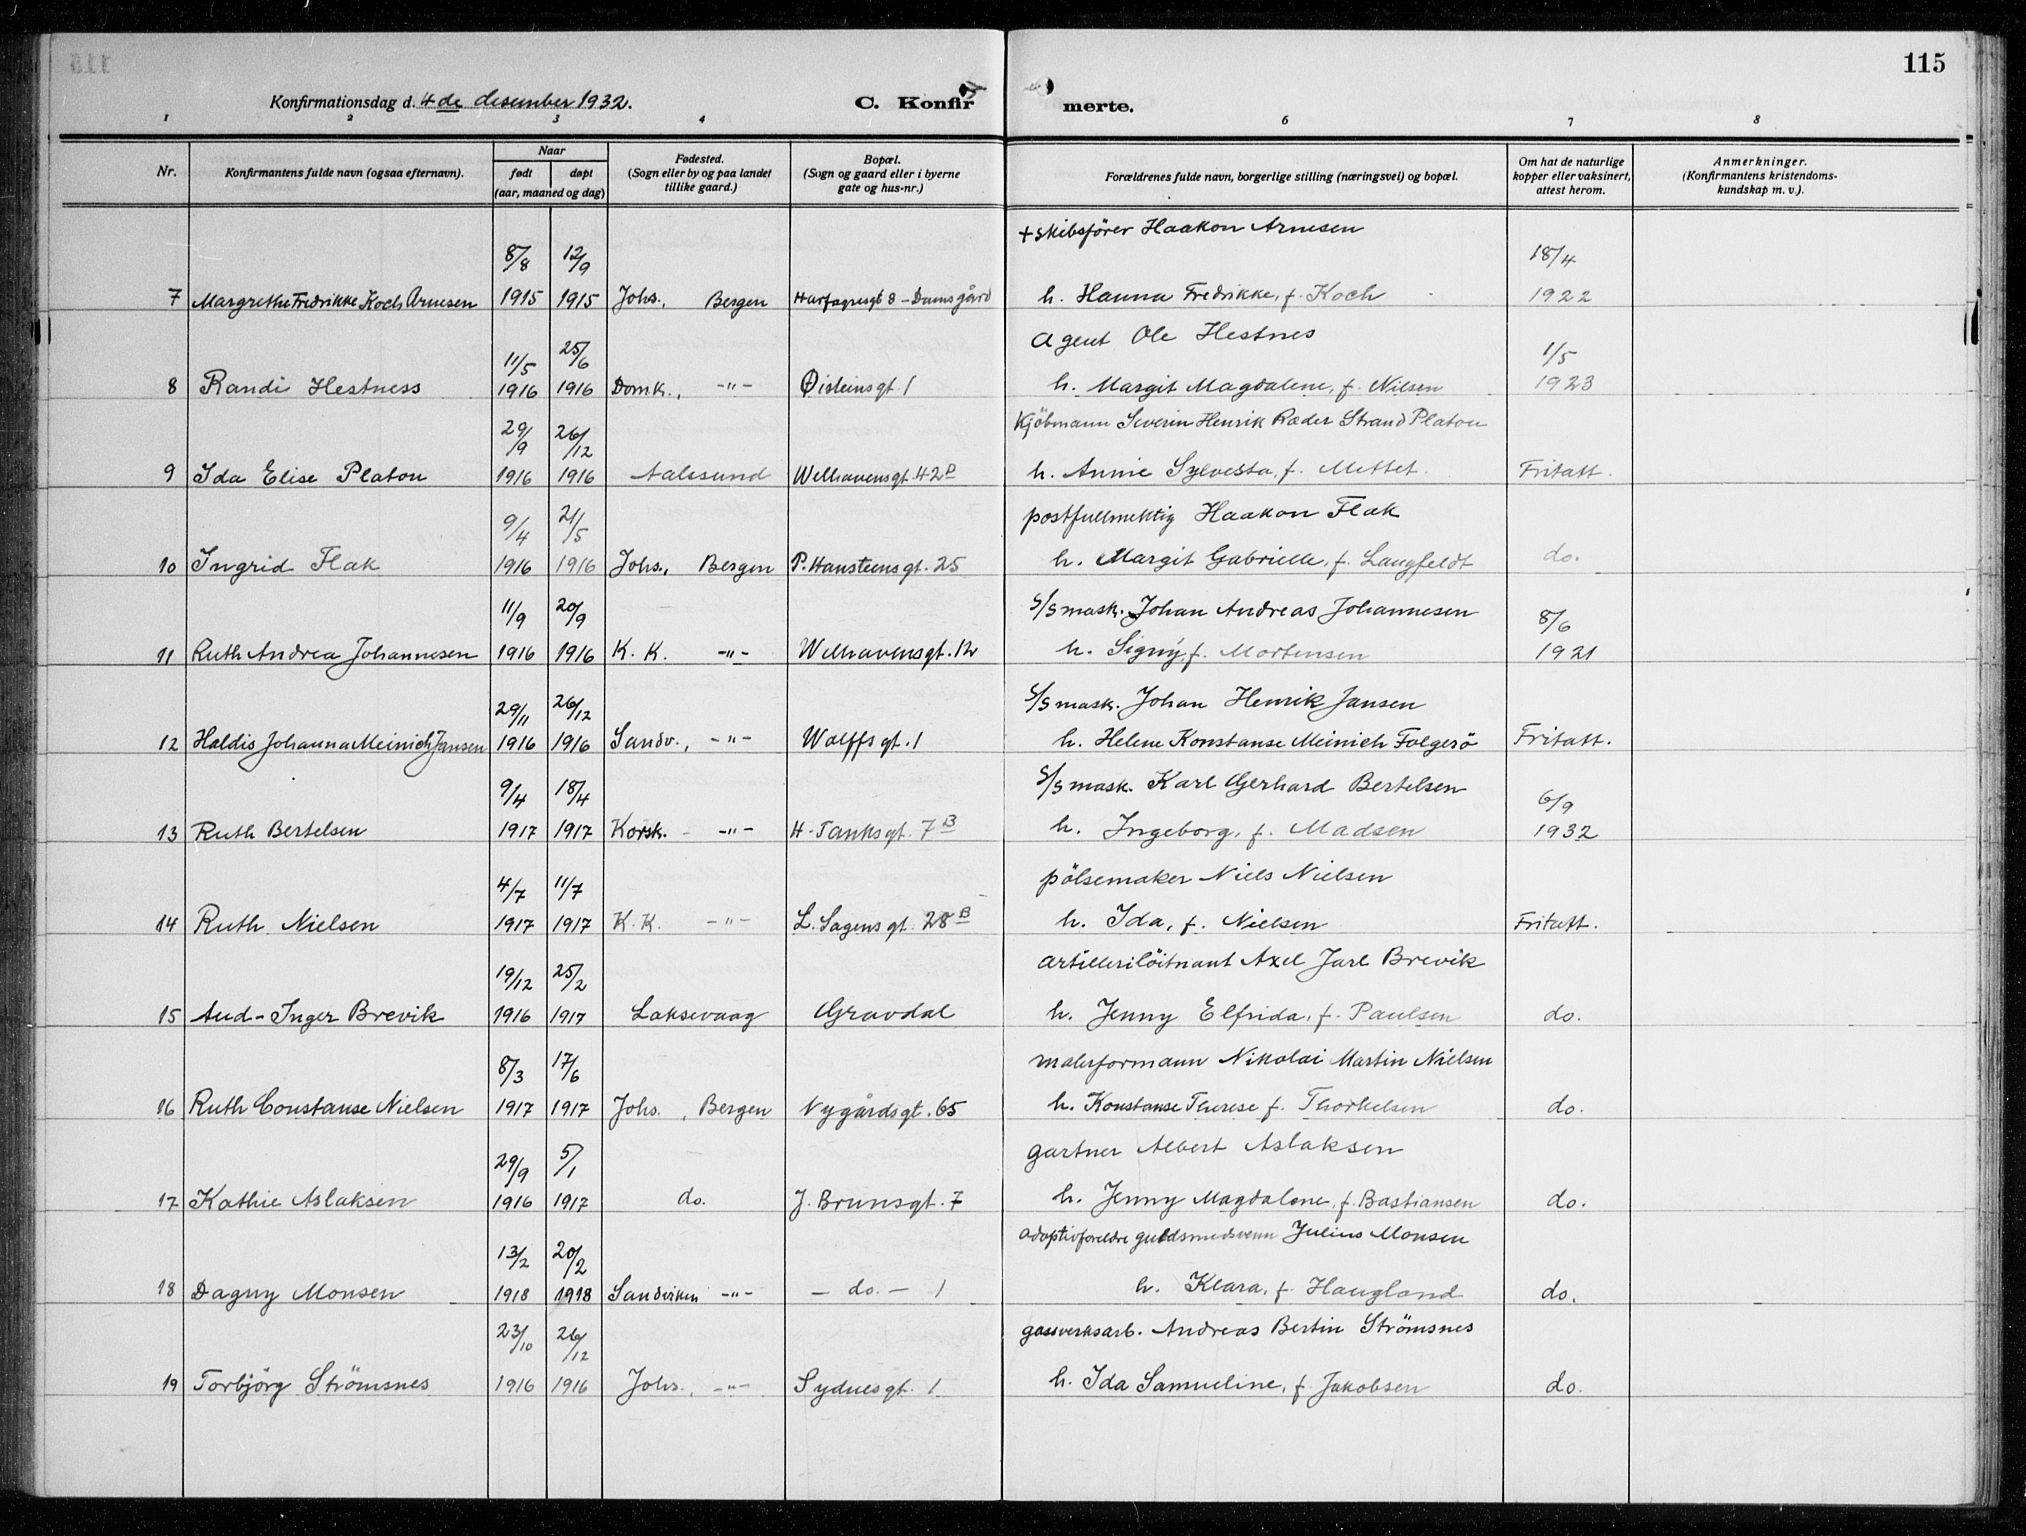 115
Konfirmationsdag d. 4de desember 1932.
C. Konfirmerte.
1 2 3 4 6 7 8
Nr.
Konfirmantens fulde navn (ogsaa efternavn).
Naar
født døpt
(aar, maaned og dag)
Fødested.
(Sogn eller by og paa landet
tillike gaard.)
Bopæl.
(Sogn og gaard eller i byerne
gate og hus-nr.)
Forældrenes fulde navn, borgerlige stilling (næringsvei) og bopæl.
Om hat de naturlige
kopper eller vaksinert,
attest herom.
Anmerkninger.
(Konfirmantens kristendoms-
kundskap m. v.).
8/8 12/9 + skibsfører Haakon Arnesen 18/4
7 Margrethe Fredrikke Koch Arnesen 1915 1915 Johs., Bergen Harfagresgt 8 - Damsgård h. Hanna Fredrikke, f. Koch 1922
11/5 25/6 Agent Ole Hestnes 1/5
8 Randi Hestness 1916 1916 Domk., -"- Øisteinsgt 1 h. Margit Magdalene, f. Nilsen 1923
29/9 26/12 Kjöbmann Severin Henrik Ræder Strand Platou
9 Ida Elise Platou 1916 1916 Aalesund Welhavensgt. 42D h. Annie Sylvesta, f. Mettet. Fritatt.
9/4 21/5 postfullmektig Haakon Flak
10 Ingrid Flak 1916 1916 Johs., Bergen P. Hansteensgt. 25 h. Margit Gabrielle, f. Langfeldt do.
11/9 20/9 s/s mask. Johan Andreas Johannesen 8/6
11 Ruth Andrea Johannesen 1916 1916 K. K. -"- Welhavensgt. 12 h. Signy, f. Mortensen 1921
29/11 26/12 s/s mask. Johan Henrik Jansen
12 Haldis Johanna Meinich Jansen 1916 1916 Sandv., -"- Wolffsgt. 1 h. Helene Konstanse Meinich Folgerö Fritatt.
9/4 18/4 s/s mask. Karl Gerhard Bertelsen 6/9
13 Ruth Bertelsen 1917 1917 Korsk. -"- H. Tanksgt. 7B h. Ingeborg, f. Madsen 1932
4/7 11/7 pölsemaker Niels Nielsen
14 Ruth Nielsen 1917 1917 K. K. -"- L. Sagensgt. 28B h. Ida, f. Nielsen Fritatt.
19/12 25/2 artillerilöitnant Axel Jarl Brevik
15 Aud-Inger Brevik 1916 1917 Laksevaag Gravdal h. Jenny Elfrida, f. Paulsen do.
8/3 17/6 malerformann Nikolai Martin Nielsen
16 Ruth Constanse Nielsen 1917 1917 Johs., Bergen Nygårdsgt. 65 h. Konstanse Therese f. Thorkelsen do.
29/9 5/1 gartner Albert Aslaksen
17 Kathie Aslaksen 1916 1917 do. J. Brunsgt. 7 h. Jenny Magdalene, f. Bastiansen do.
13/2 20/2 adoptivforeldre guldsmedsvenn Julius Monsen
18 Dagny Monsen 1918 1918 Sandviken -"- - do. - 1 h. Klara, f. Haugland do.
23/10 26/12 gassverksarb. Andreas Bertin Strömsnes
19 Torbjörg Strömsnes 1916 1916 Johs., -"- Sydnesgt. 1 h. Ida Samueline, f. Jakobsen do.